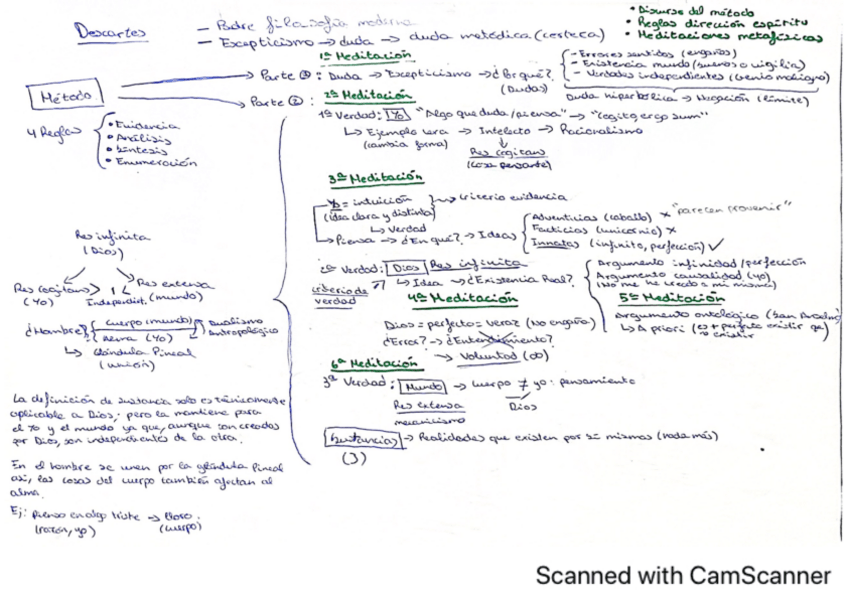 Descartes
— Padre filosofía moderna
— Escepticismo → duda → duda metódica (certeza)
• Discurso del método
• Reglas dirección espíritu
• Meditaciones metafísicas
1ª Meditación
Método
Parte ① : Duda → Escepticismo → ¿Por qué?
(Dudas)
- Errores sentidos (engaños)
- Existencia mundo (sueños o vigilia)
- Verdades independientes (genio maligno)
Duda hiperbólica → Negación (límite)
Parte ② :
2ª Meditación
4 Reglas
• Evidencia
• Análisis
• Síntesis
• Enumeración
1ª Verdad: Yo "Algo que duda/piensa" → "cogito, ergo sum"
↳ Ejemplo cera → Intelecto → Racionalismo
(cambia forma)
Res cogitans
(cosa pensante)
3ª Meditación
Yo = intuición → criterio evidencia
(idea clara y distinta)
↳ Verdad
→ Piensa → ¿En qué? → Ideas
Adventicias (caballo) x "parecen provenir"
Facticias (unicornio) x
Innatas (infinito, perfección) ✓
2ª Verdad: Dios Res infinita
↳ Idea → ¿Existencia Real?
criterio de verdad
Argumento infinidad/perfección
Argumento causalidad (yo)
(No me he creado a mi mismo)
4ª Meditación
Dios = perfecto = veraz (No engaña)
¿Error? → ¿Entendimiento?
→ Voluntad (∞)
5ª Meditación
Argumento ontológico (San Anselmo)
↳ A priori (es + perfecto existir que no existir
6ª Meditación
3ª Verdad: Mundo → cuerpo ≠ yo: pensamiento
Res extensa
mecanicismo
Dios
Sustancias → Realidades que existen por sí mismas (nada más)
(3)
Res infinita
(Dios)
Res cogitans
(Yo)
Res extensa
(mundo)
Independist.
¿Hombre? { cuerpo (mundo)
Alma (Yo)
Dualismo antropológico
↳ Glándula Pineal
(unión)
La definición de sustancia solo es únicamente
aplicable a Dios; pero la mantiene para
el yo y el mundo ya que, aunque son creados
por Dios, son independientes de la otra.
En el hombre se unen por la glándula Pineal
así, las cosas del cuerpo también afectan al
alma.
Ej: Pienso en algo triste → lloro.
(razón, yo) (cuerpo)
Scanned with CamScanner